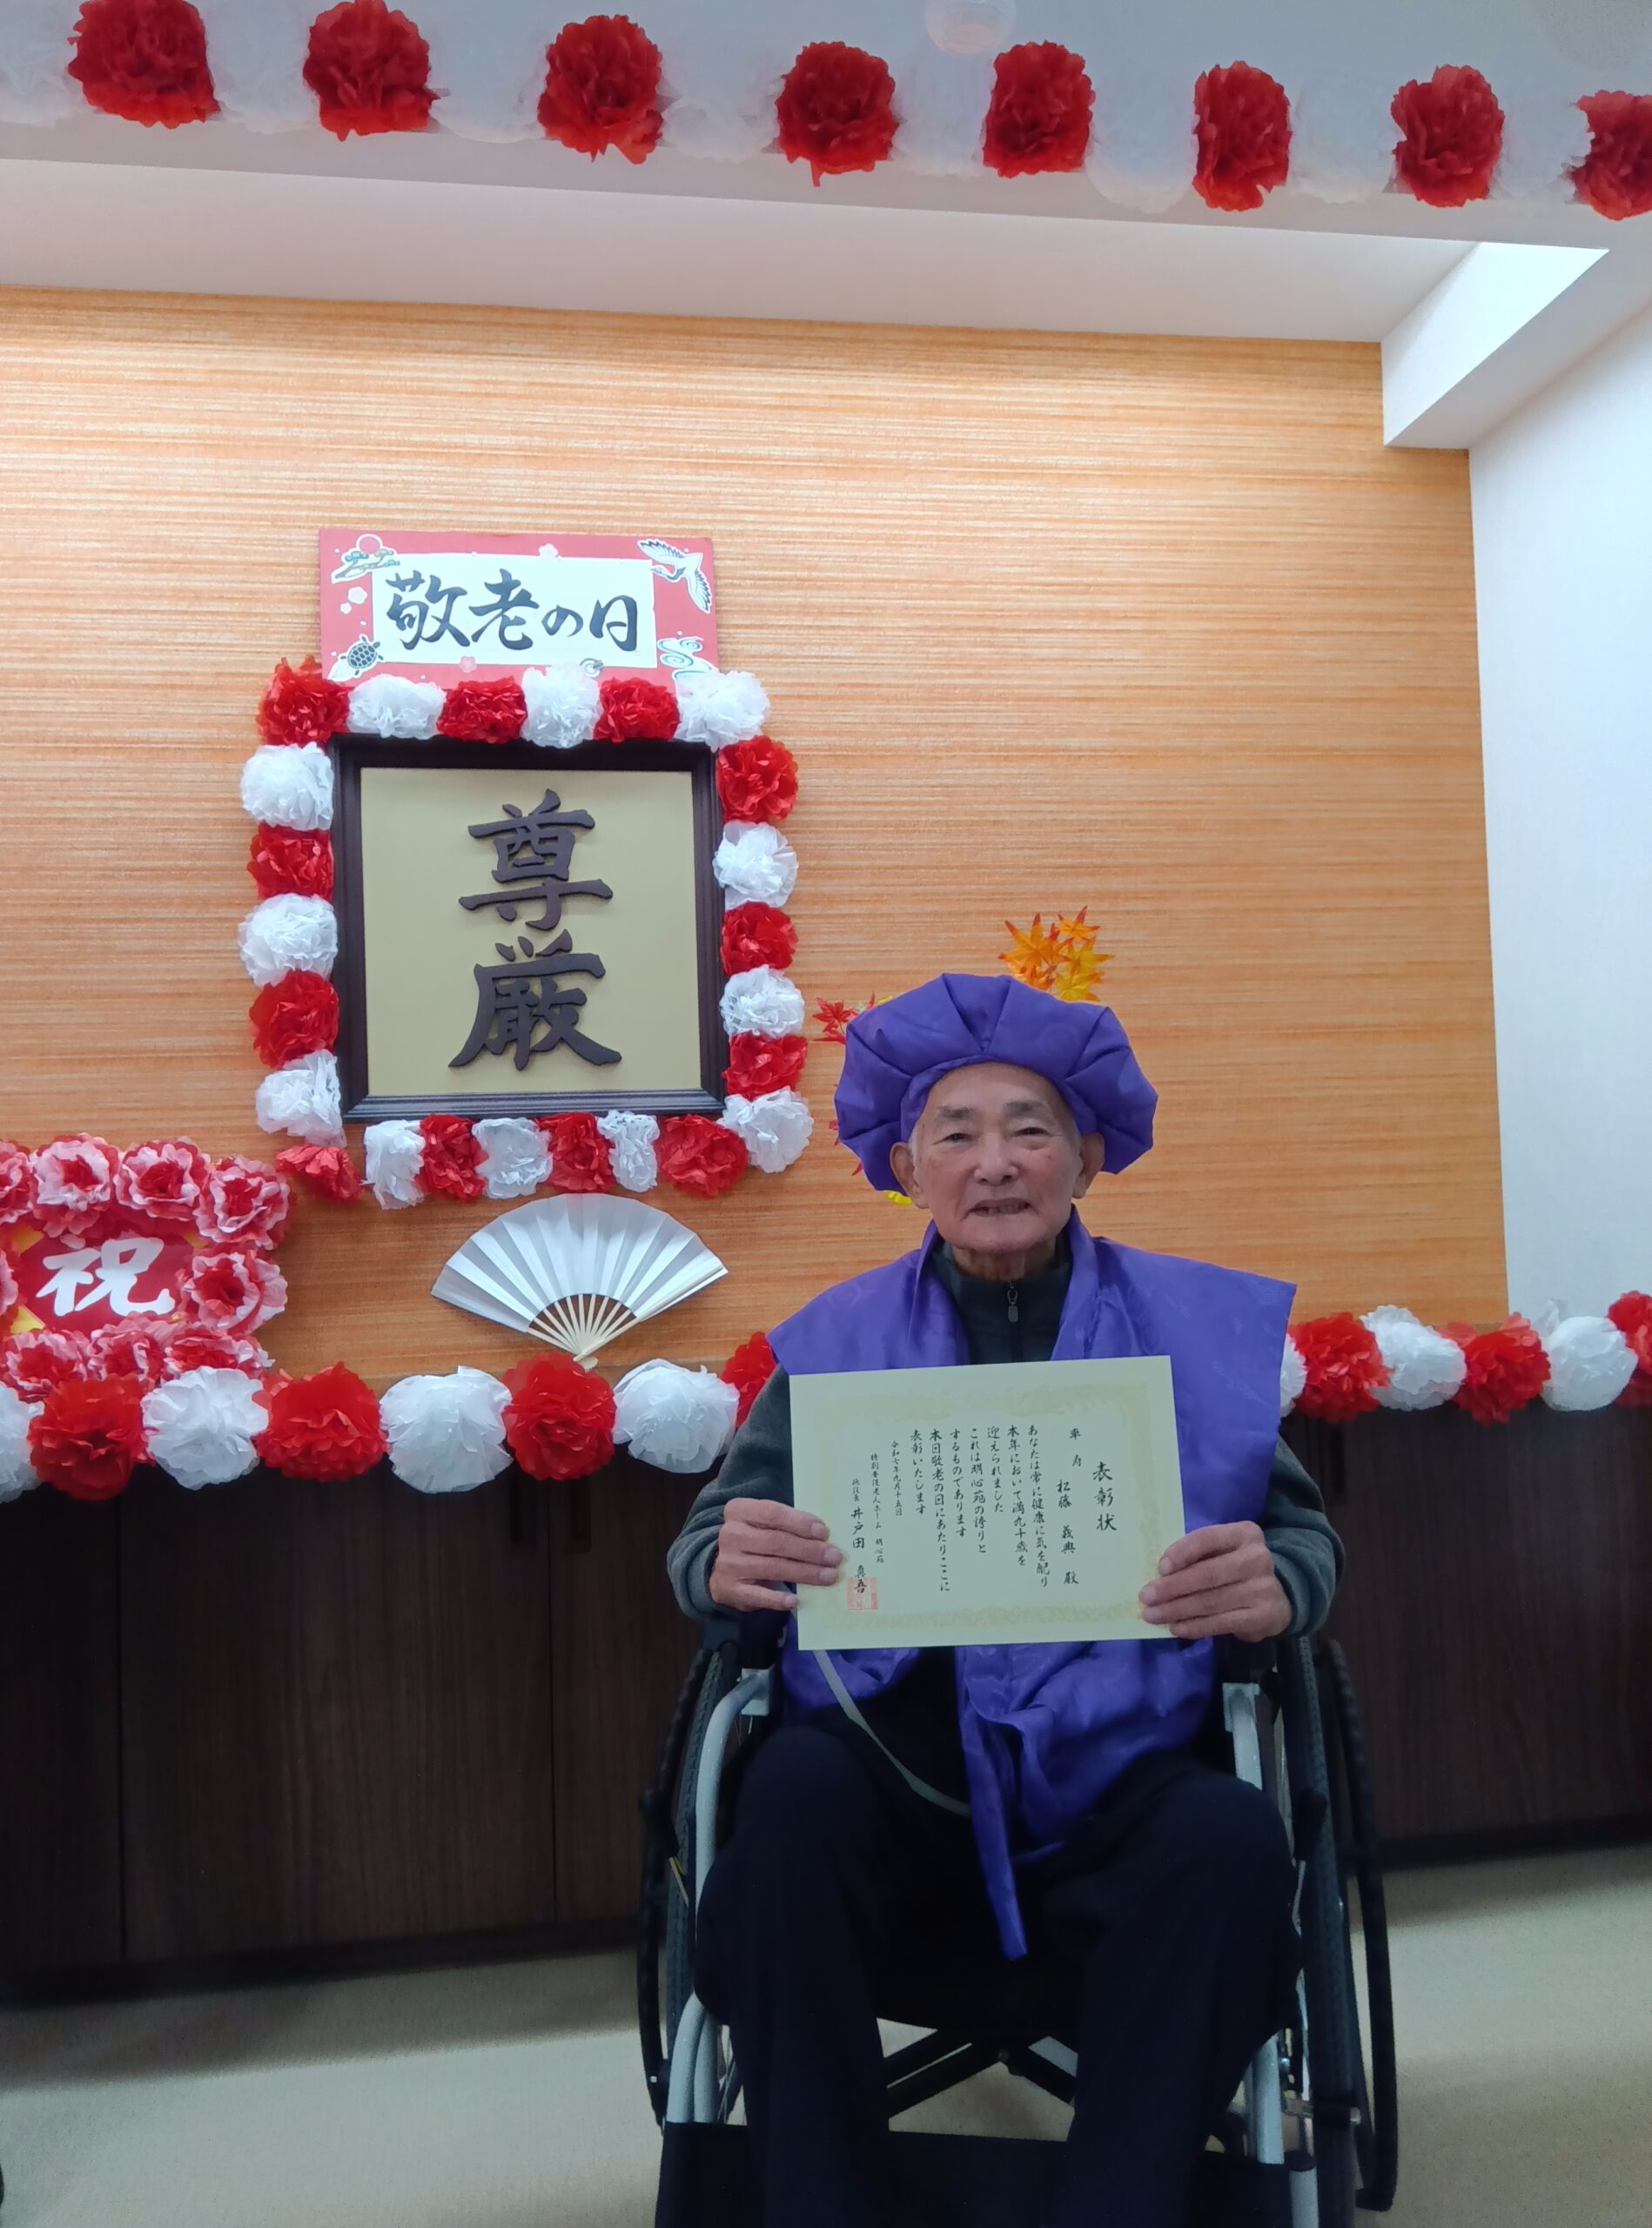 敬老の日
尊厳
祝
表彰状
卒寿
松藤 義典 殿
あなたは常に健康に気を配り
本年において満九十歳を
迎えられました
これは明心苑の誇りと
するものであります
本日敬老の日にあたりここに
表彰いたします
令和七年九月十五日
特別養護老人ホーム 明心苑
施設長 井戸田 真吾